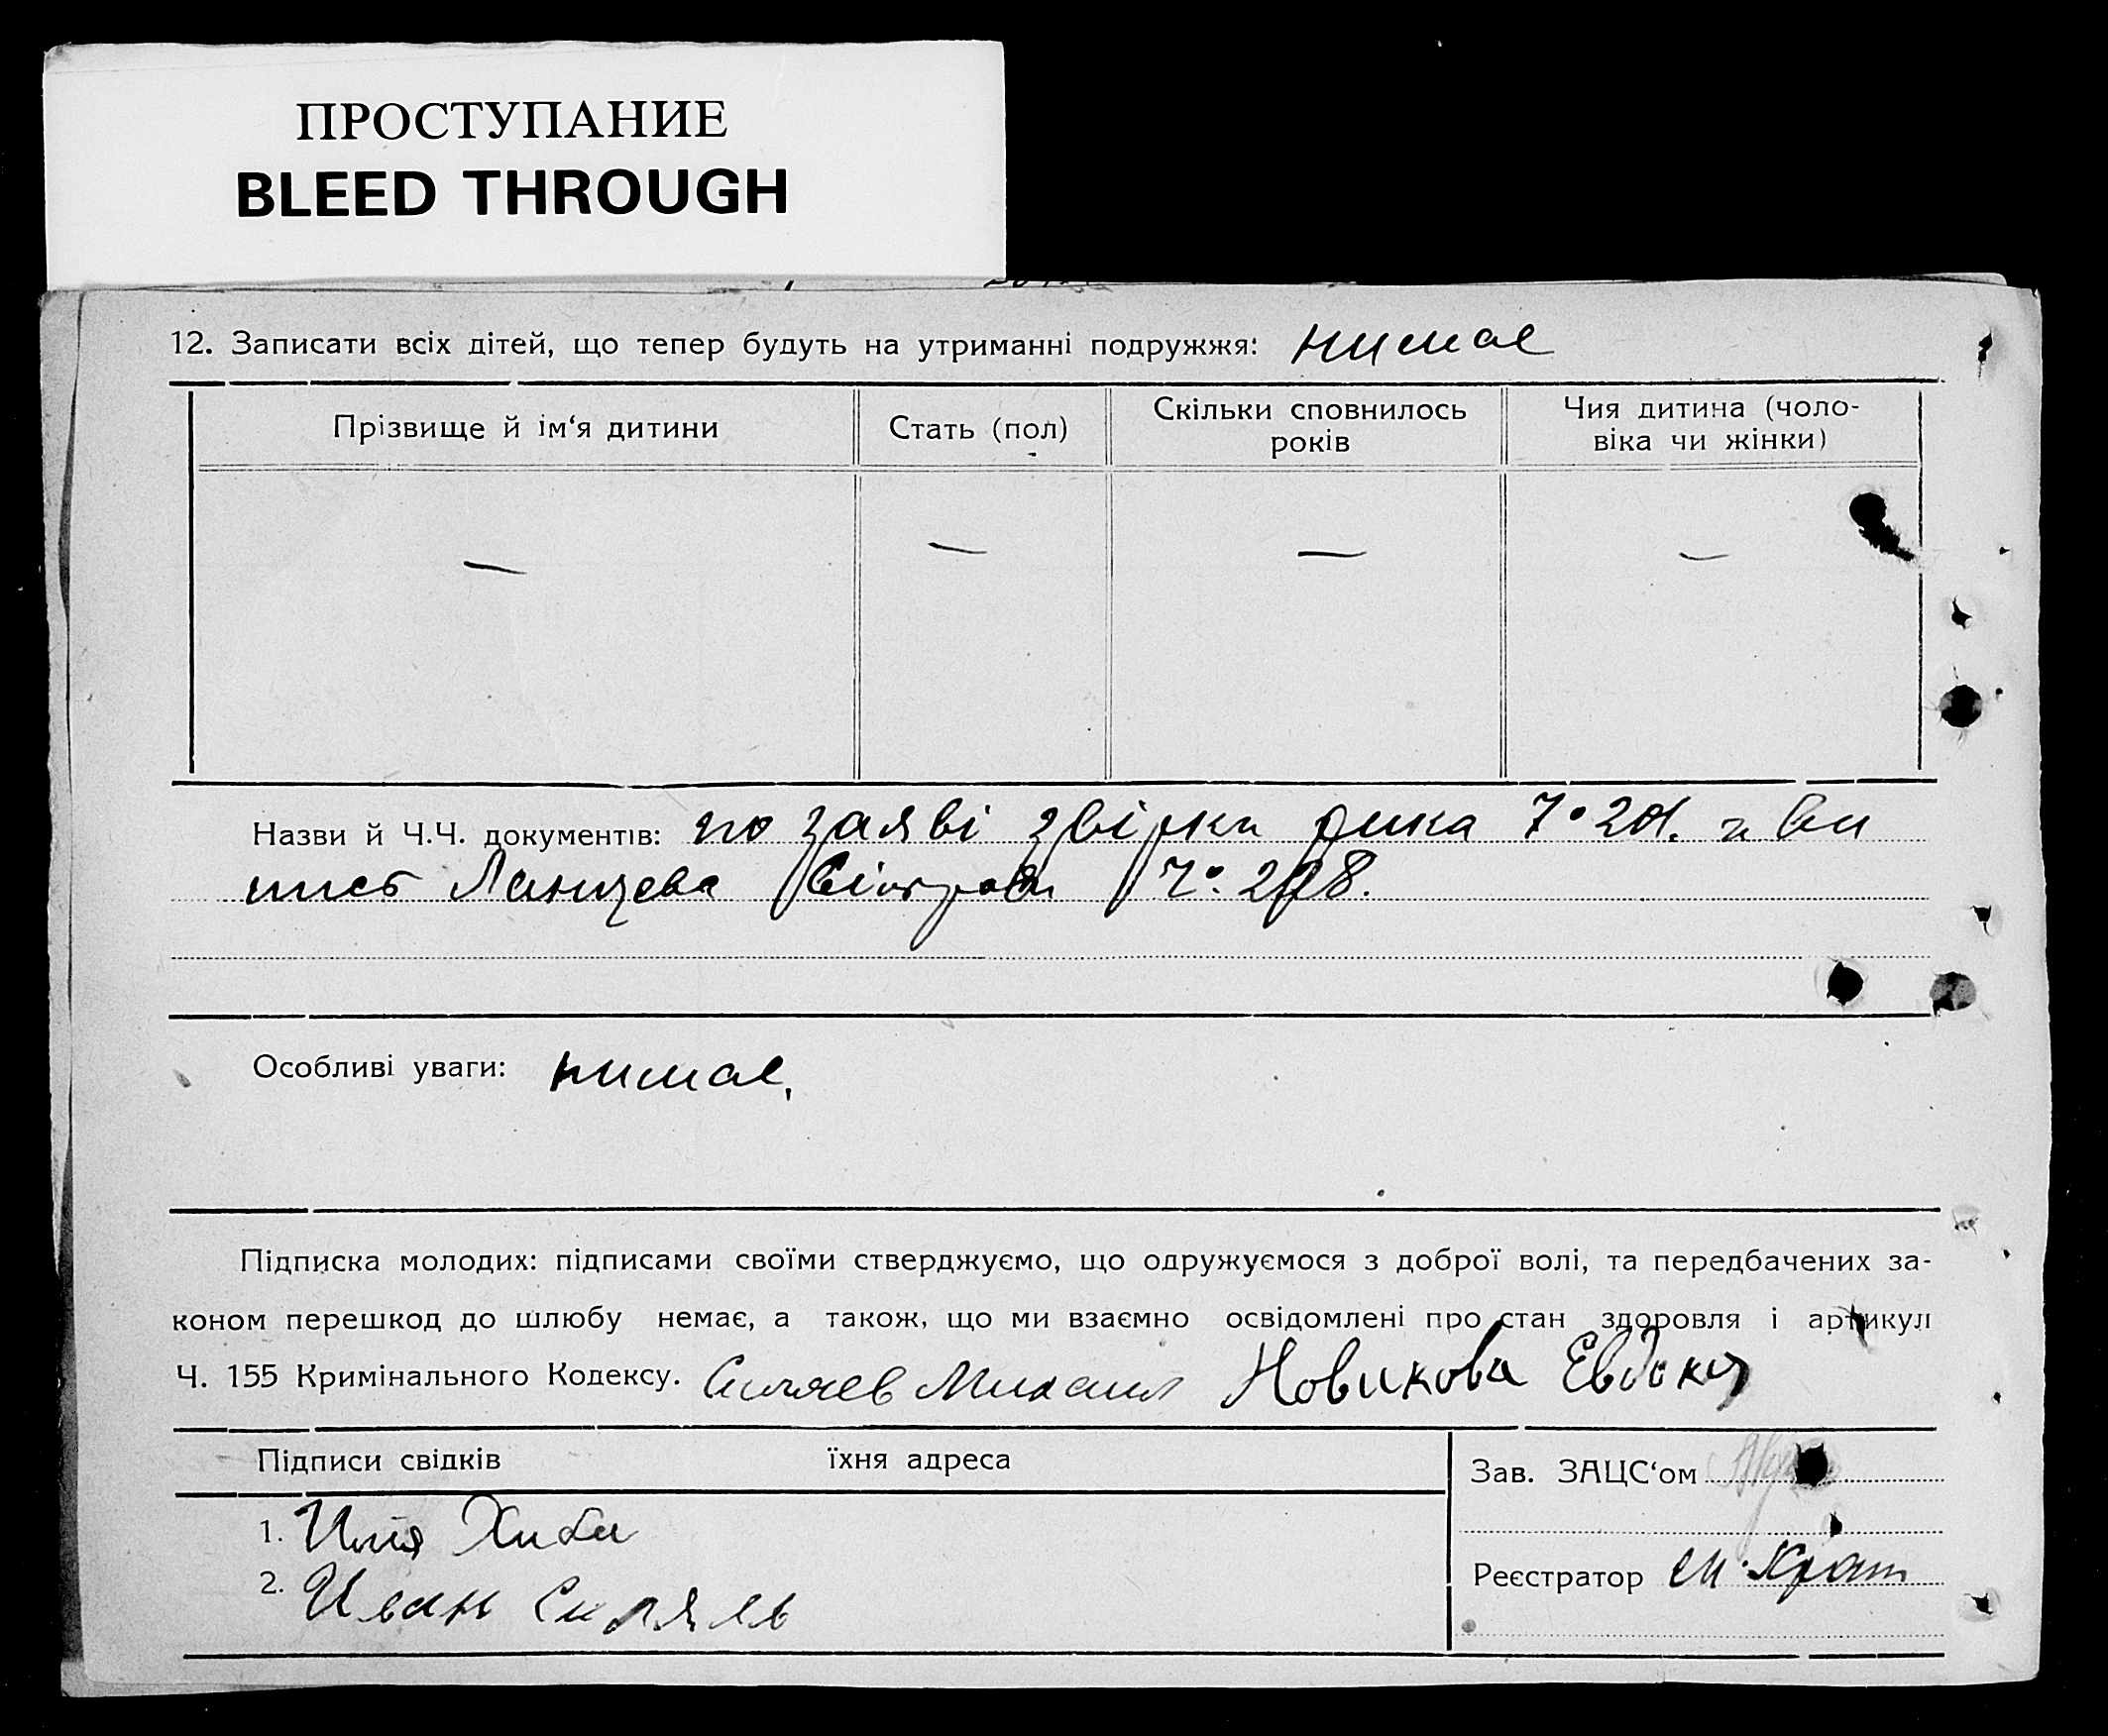 ПРОСТУПАНИЕ
BLEED THROUGH
12. Записати всіх дітей, що тепер будуть на утриманні подружжя: нимає
Прізвище й ім‘я дитини
Стать (пол)
Скільки сповнилось
років
Чия дитина (чоло-
віка чи жінки)
— — — —
Назви й Ч.Ч. документів: по заяві звірки
Ланцева
Особливі уваги: нимає.
Підписка молодих: підписами своїми стверджуємо, що одружуємося з доброї волі, та передбачених за-
коном перешкод до шлюбу немає, а також, що ми взаємно освідомлені про стан здоровля і артикул
Ч. 155 Кримінального Кодексу. Михаил Новикова Евдокия
Підписи свідків їхня адреса
Зав. ЗАЦС‘ом
1. Илья Хиба
2. Иван
Реєстратор